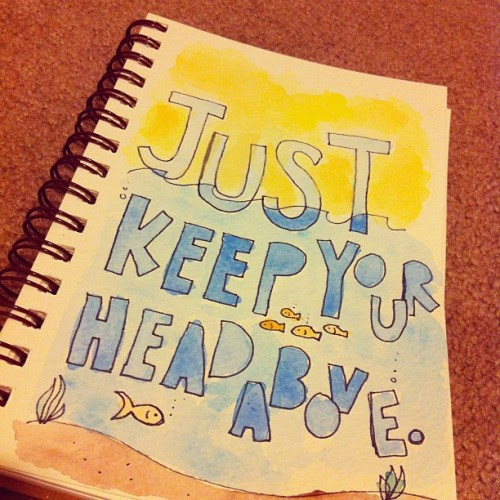 JUST
KEEP YOUR
HEAD ABOVE.